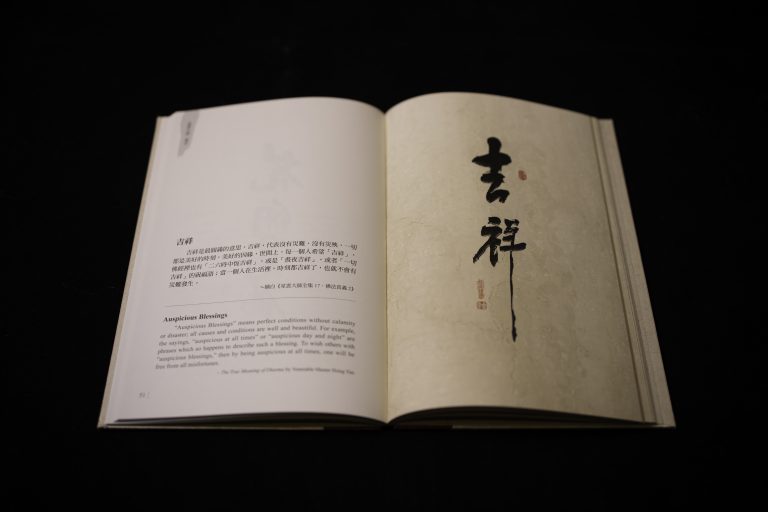 吉祥
吉祥是最圓滿的意思，吉祥，代表沒有災難，沒有災殃，一切
都是美好的時刻，美好的因緣。世間上，每一個人希望「吉祥」，
佛經裡也有「二六時中恆吉祥」，或是「晝夜吉祥」，或者「一切
吉祥」的祝福語；當一個人在生活裡，時刻都吉祥了，也就不會有
災難發生。
～摘自《星雲大師全集17．佛法真義2》
Auspicious Blessings
"Auspicious Blessings" means perfect conditions without calamity
or disaster; all causes and conditions are well and beautiful. For example,
the sayings, "auspicious at all times" or "auspicious day and night" are
phrases which so happens to describe such a blessing. To wish others with
"auspicious blessings," then by being auspicious at all times, one will be
free from all misfortunes.
- The True Meaning of Dharma by Venerable Master Hsing Yun
51
吉祥